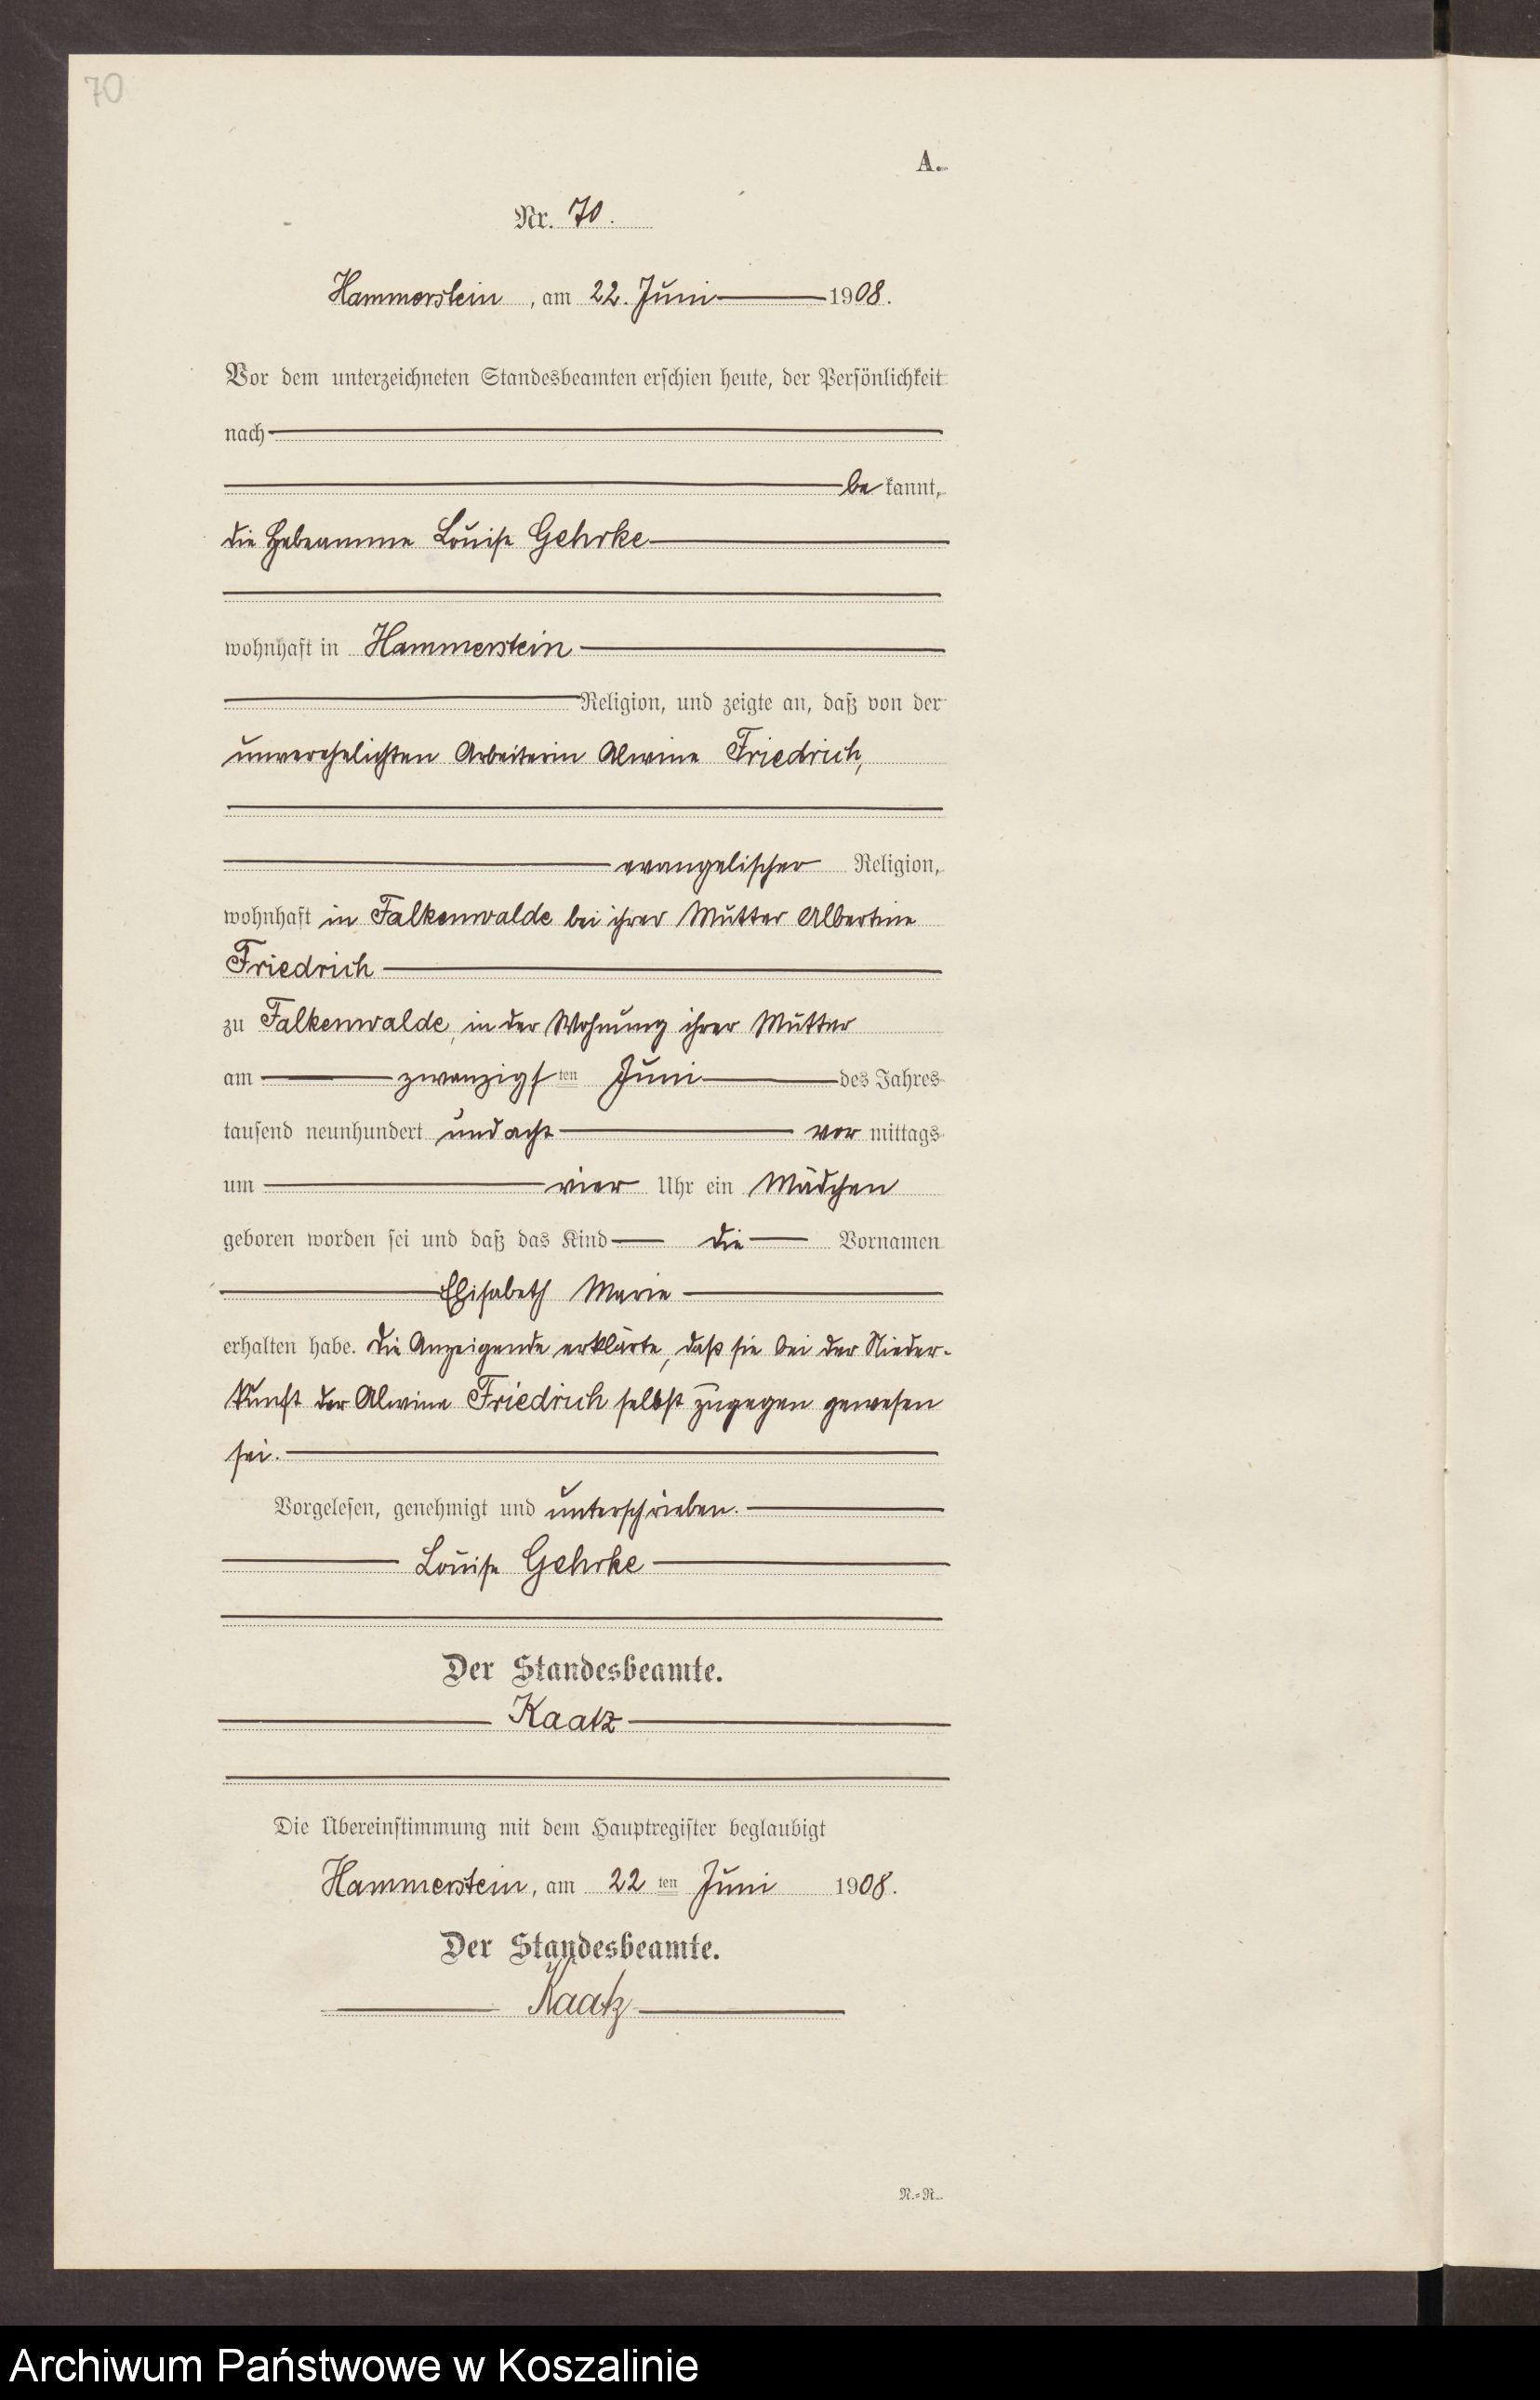 70
A.
Nr. 70.
Hammerstein, am 22. Juni 1908.
Vor dem unterzeichneten Standesbeamten erschien heute, der Persönlichkeit
nach
be kannt,
die Hebeamme Louise Gehrke
wohnhaft in Hammerstein
Religion, und zeigte an, daß von der
unverehelichten Arbeiterin Alwine Friedrich,
evangelischer Religion,
wohnhaft in Falkenwalde bei ihrer Mutter Albertine
Friedrich
zu Falkenwalde, in der Wohnung ihrer Mutter
am zwanzigsten Juni des Jahres
tausend neunhundert und acht vor mittags
um vier Uhr ein Mädchen
geboren worden sei und daß das Kind die Vornamen
Elisabeth Marie
erhalten habe. Die Anzeigende erklärte, daß sie bei der Nieder-
kunft der Alwine Friedrich selbst zugegen gewesen
sei.
Vorgelesen, genehmigt und unterschrieben.
Louise Gehrke
Der Standesbeamte.
Kaatz
Die Übereinstimmung mit dem Hauptregister beglaubigt
Hammerstein, am 22 ten Juni 1908.
Der Standesbeamte.
Kaatz
R.=R.
Archiwum Państwowe w Koszalinie